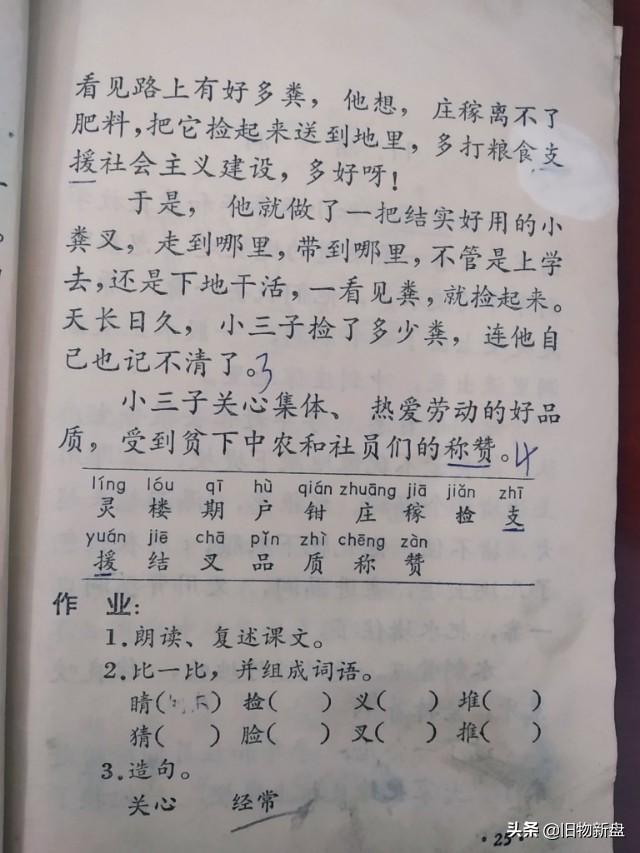 看见路上有好多粪，他想，庄稼离不了
肥料，把它捡起来送到地里，多打粮食支
援社会主义建设，多好呀！
于是，他就做了一把结实好用的小
粪叉，走到哪里，带到哪里，不管是上学
去，还是下地干活，一看见粪，就捡起来。
天长日久，小三子捡了多少粪，连他自
己也记不清了。3
小三子关心集体、热爱劳动的好品
质，受到贫下中农和社员们的称赞。4
líng lóu qī hù qián zhuāng jiā jiǎn zhī
灵 楼 期 户 钳 庄 稼 捡 支
yuán jiē chā pǐn zhì chēng zàn
援 结 叉 品 质 称 赞
作 业：
1.朗读、复述课文。
2.比一比，并组成词语。
晴( ) 捡( ) 义( ) 堆( )
猜( ) 脸( ) 叉( ) 推( )
3.造句。
关心 经常
·25·
头条 @旧物新盘